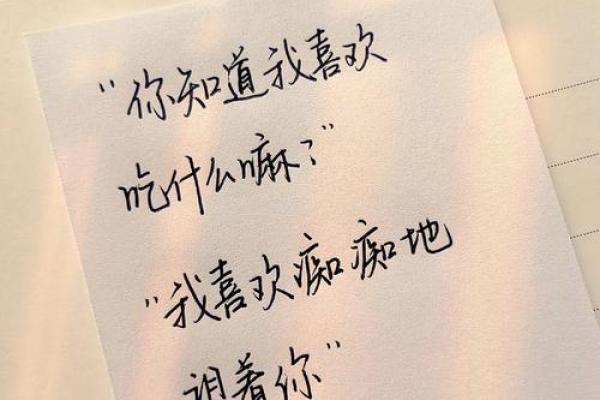 “你知道我喜欢
吃什么嘛？”
“我喜欢痴痴地
望着你”